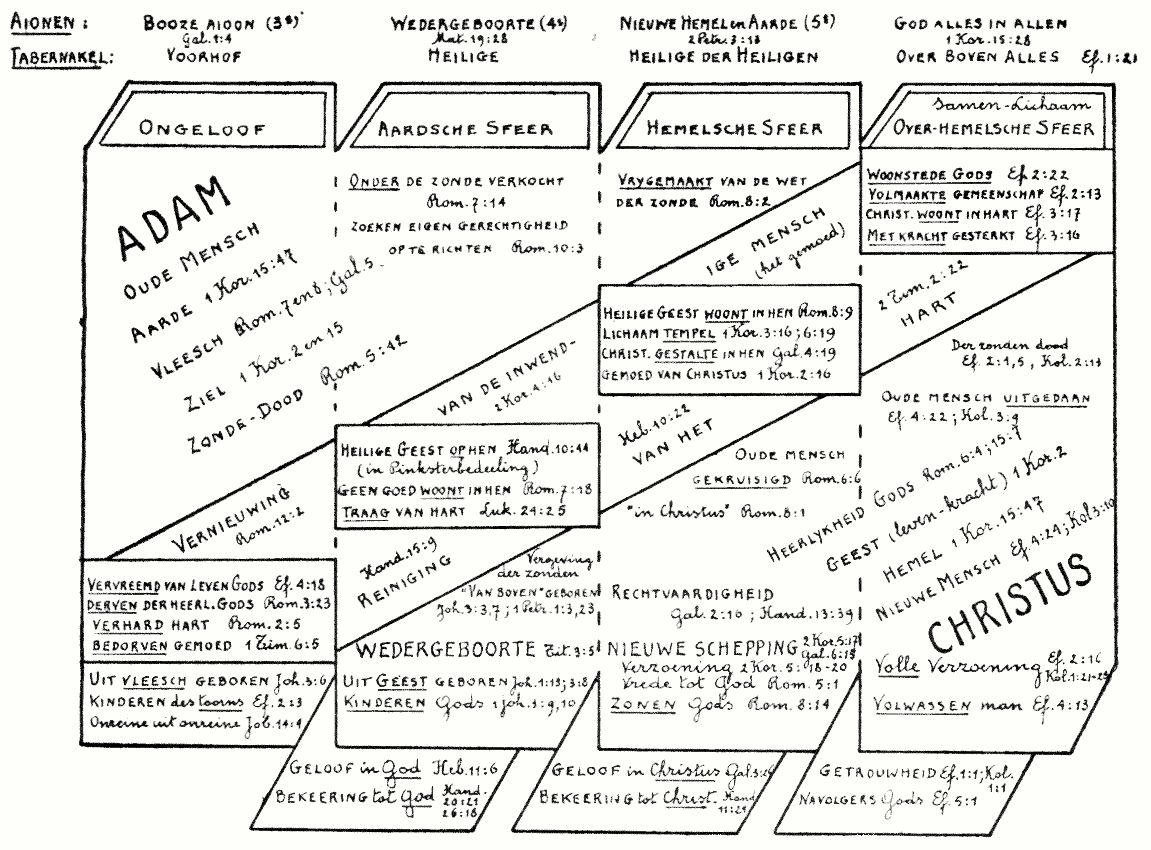 AIONEN : BOOZE AIOON (3e) WEDERGEBOORTE (4e) NIEUWE HEMEL en AARDE (5e) GOD ALLES IN ALLEN
Gal.1:4 Mat.19:28 2 Petr.3:13 1 Kor.15:28
TABERNAKEL: VOORHOF HEILIGE HEILIGE DER HEILIGEN OVER BOVEN ALLES Ef.1:21
ONGELOOF
ADAM
OUDE MENSCH
AARDE 1 Kor.15:47
VLEESCH Rom.7 en 8; Gal.5
ZIEL 1 Kor.2 en 15
ZONDE-DOOD Rom.5:12
VERNIEUWING
Rom.12:2
VERVREEMD VAN LEVEN GODS Ef.4:18
DERVEN DER HEERL. GODS Rom.3:23
VERHARD HART Rom.2:5
BEDORVEN GEMOED 1 Tim.6:5
UIT VLEESCH GEBOREN Joh.3:6
KINDEREN des toorns Ef.2:3
Onreine uit onreine Job.14:4
AARDSCHE SFEER
ONDER DE ZONDE VERKOCHT
Rom.7:14
ZOEKEN EIGEN GERECHTIGHEID
OP TE RICHTEN Rom.10:3
VAN DE INWEND-
2 Kor.4:16
HEILIGE GEEST OP HEN Hand.10:44
(in Pinksterbedeeling)
GEEN GOED WOONT IN HEN Rom.7:18
TRAAG VAN HART Luk.24:25
Hand.15:9
REINIGING
Vergeving
der zonden
"VAN BOVEN" GEBOREN
Joh.3:3,7; 1 Petr.1:3,23
WEDERGEBOORTE Tit.3:5
UIT GEEST GEBOREN Joh.1:13; 3:8
KINDEREN Gods 1 Joh.3:9,10
GELOOF in God Heb.11:6
BEKEERING tot God Hand.
20:21
26:18
HEMELSCHE SFEER
VRYGEMAAKT VAN DE WET
DER ZONDE Rom.8:2
IGE MENSCH
(het gemoed)
HEILIGE GEEST WOONT IN HEN Rom.8:9
LICHAAM TEMPEL 1 Kor.3:16; 6:19
CHRIST. GESTALTE IN HEN Gal.4:19
GEMOED VAN CHRISTUS 1 Kor.2:16
Heb.10:22
VAN HET
OUDE MENSCH
GEKRUISIGD Rom.6:6
"in Christus" Rom.8:1
RECHTVAARDIGHEID
Gal.2:16; Hand.13:39
NIEUWE SCHEPPING 2 Kor.5:17
Gal.6:15
Verzoening 2 Kor.5:18-20
Vrede tot God Rom.5:1
ZONEN Gods Rom.8:14
GELOOF in Christus Gal.3:26
BEKEERING tot Christ. Hand
11:21
Samen-Lichaam
OVER-HEMELSCHE SFEER
WOONSTEDE GODS Ef.2:22
VOLMAAKTE GEMEENSCHAP Ef.2:13
CHRIST. WOONT IN HART Ef.3:17
MET KRACHT GESTERKT Ef.3:16
2 Tim.2:22
HART
Der zonden dood
Ef.2:1,5, Kol.2:13
OUDE MENSCH UITGEDAAN
Ef.4:22; Kol.3:9
HEERLYKHEID GODS Rom.6:4; 15:7
GEEST (leven-kracht) 1 Kor.2
HEMEL 1 Kor.15:47
NIEUWE MENSCH Ef.4:24; Kol.3:10
CHRISTUS
Volle Verzoening Ef.2:16
Kol.1:21-22
VOLWASSEN man Ef.4:13
GETROUWHEID Ef.1:1; Kol.
1:1
NAVOLGERS Gods Ef.5:1